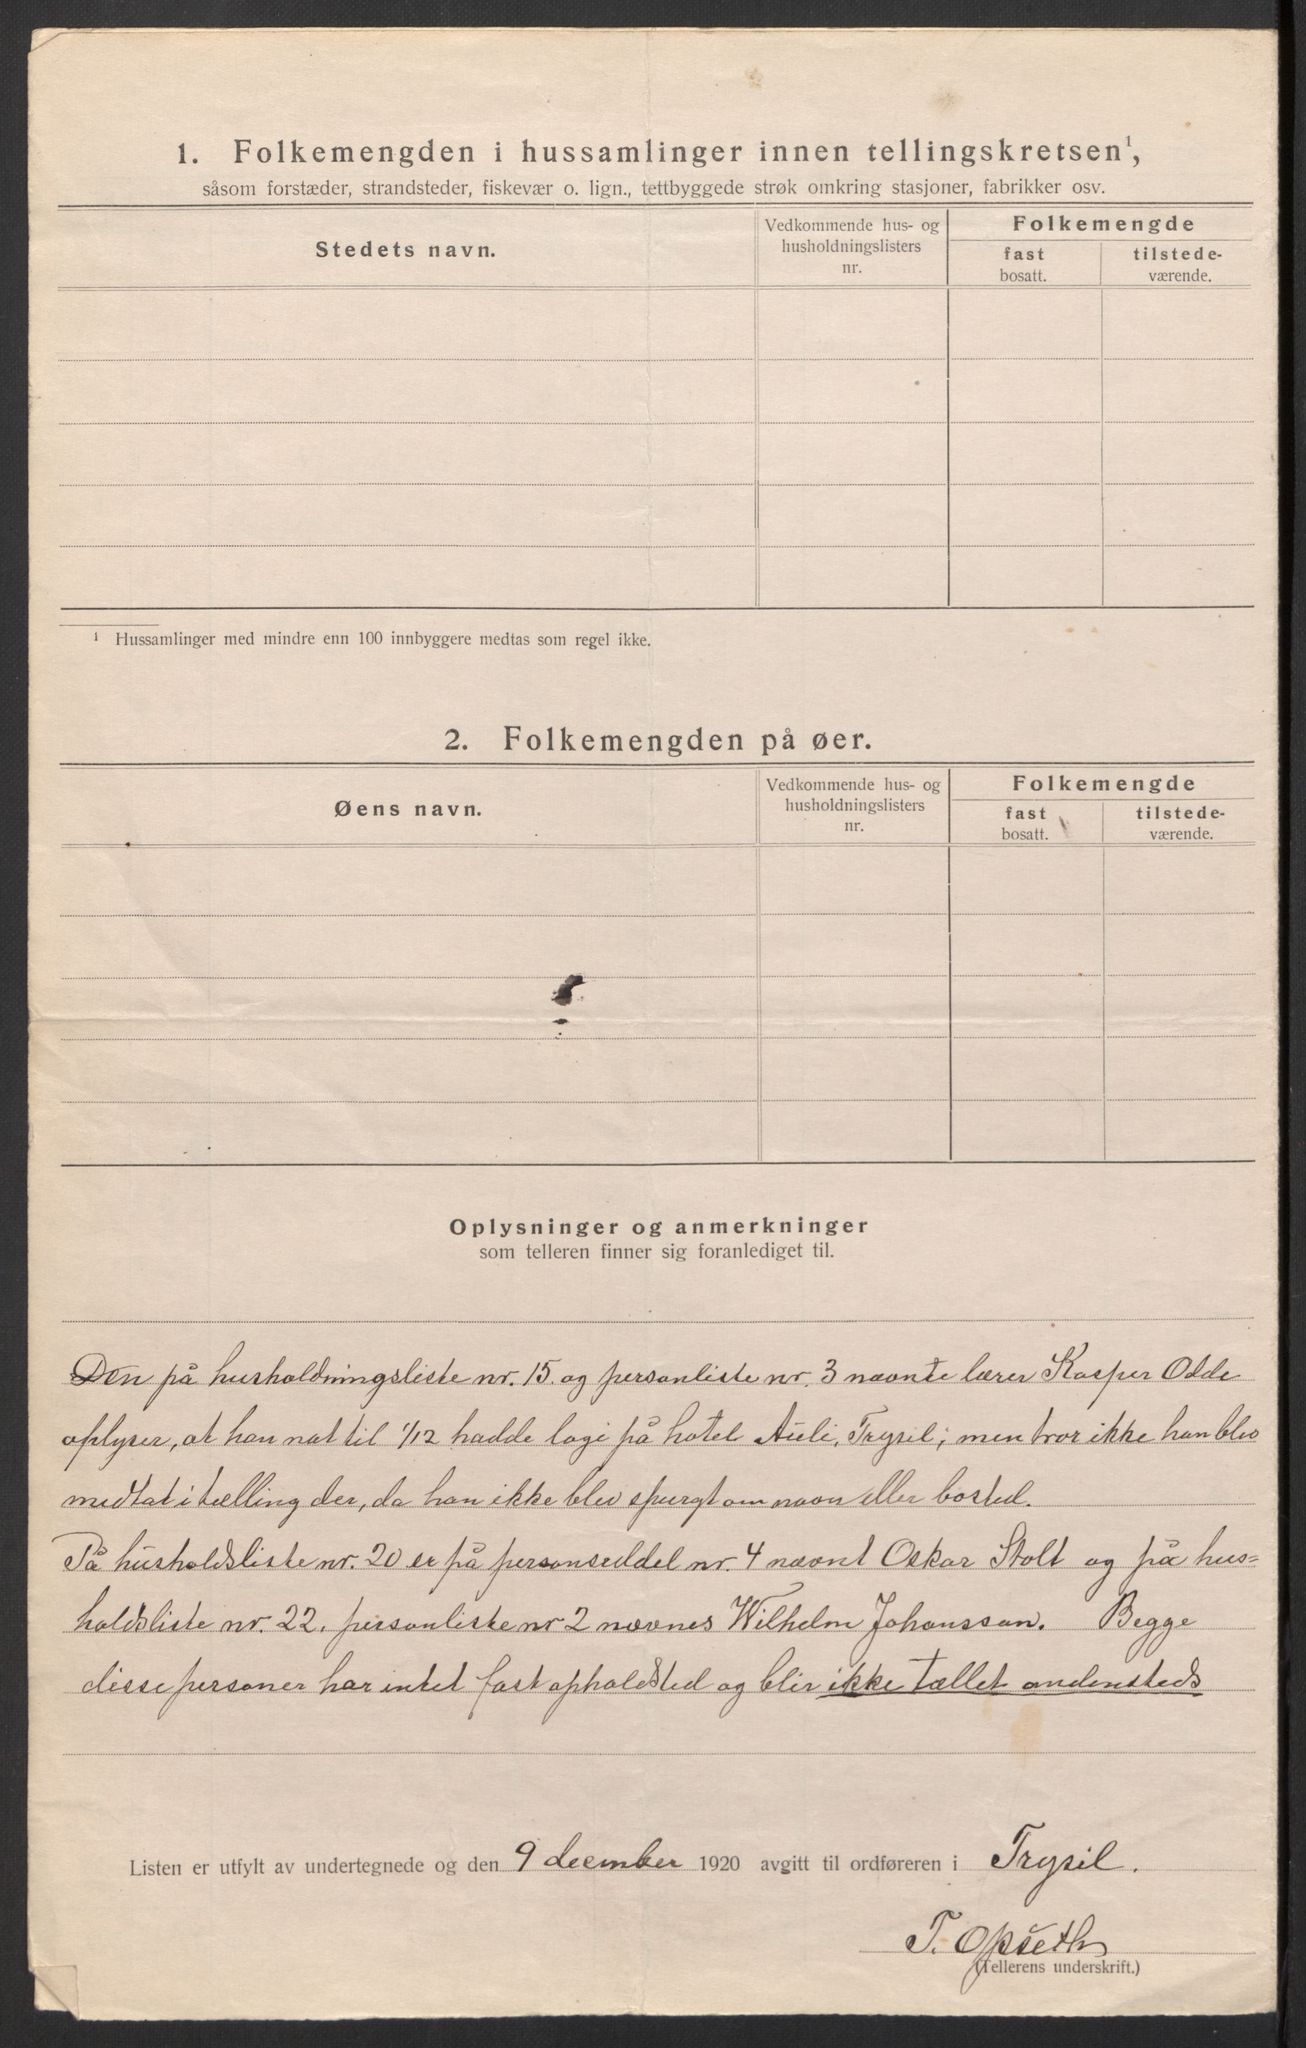 1. Folkemengden i hussamlinger innen tellingskretsen¹,
såsom forstæder, strandsteder, fiskevær o. lign., tettbyggede strøk omkring stasjoner, fabrikker osv.
Stedets navn.
Vedkommende hus- og
husholdningslisters
nr.
Folkemengde
fast
bosatt.
tilstede-
værende.
¹ Hussamlinger med mindre enn 100 innbyggere medtas som regel ikke.
2. Folkemengden på øer.
Øens navn.
Vedkommende hus- og
husholdningslisters
nr.
Folkemengde
fast
bosatt.
tilstede-
værende.
Oplysninger og anmerkninger
som telleren finner sig foranlediget til.
Den på husholdningsliste nr. 15 og personliste nr. 3 nævnte lærer Kasper Odde
oplyser, at han nat til 1/12 hadde logi på hotel Auli, Trysil; men tror ikke han blev
medtat i tælling der, da han ikke blev spurgt om navn eller bosted.
På husholdsliste nr. 20 er på personseddel nr. 4 nævnt Oskar Stolt og på hus=
holdsliste nr. 22. personliste nr 2 nævnes Wilhelm Johansson. Begge
disse personer har intet fast opholdsted og blir ikke tællet andensteds
Listen er utfylt av undertegnede og den 9 december 1920 avgitt til ordføreren i Trysil.
T. Opseth
(Tellerens underskrift.)